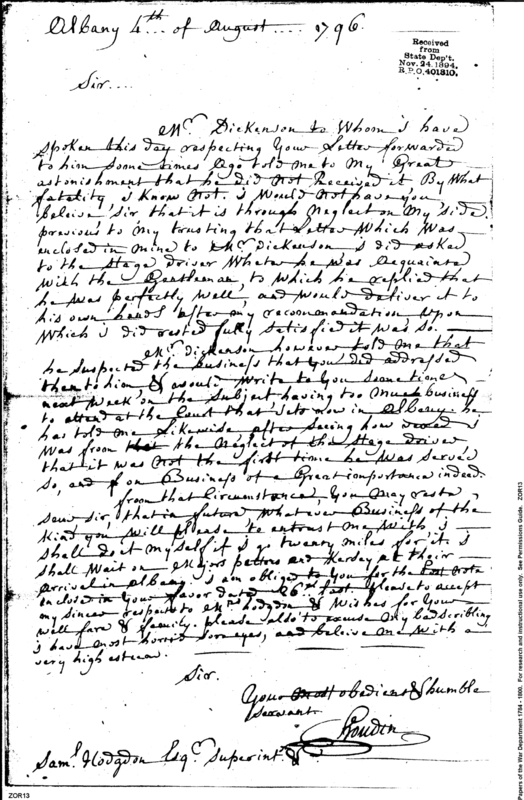 Albany 4th of August 1796
Received
from
State Dep't.
Nov. 24. 1894.
R.P.O. 401310.
Sir
Mr. Dickenson to Whom i have
spoken this day respecting Your Letter forwarded
to him some times Ago told me to My Great
astonishment that he did Not Received it By What
fatality, i Know Not. i Would Not have You
beleive Sir that it is through Neglect on My Side
previous to My trusting that Letter Which Was
enclosed in mine to Mr. Dickenson i did asked
to the Stage driver he was Acquainted
With the Gentleman, to Which he replied that
he was perfectly well, and would deliver it to
his own hand after my recommandation Upon
Which i did rested fully Satisfied it was so.
Mr. Dickenson however told me that
he suspected the business that You did addressed
then to him & would Write to You
next Week on the Subject having too Much business
to attend at the Court that Sets now in Albany he
has told me Likewise after seeing how i
Was from the Neglect of the Stage driver
that it was Not the first time he was served
so, and on Business of a Great importance indeed.
from that Circumstance, You May rest
Sir, that in future What ever Business of the
Kind you will please to entrust me With i
shall do it my self if i go twenty miles for it. i
shall Wait on Majors and Kersey at their
arrival in Albany. i am oblige to You for the
enclosed in Your favor dated 26th Last please to accept
my sincere respects to Mrs. Hodgdon & Wishes for Your
well fare & family. please also to excuse my bad scribling
i have most horrid sore eyes, and beleive me With a
very high esteem.
Sir.
Your most obedient & humble
servant
Saml. Hodgdon Esqr. Superint. &
ZOR13
Papers of the War Department 1784 - 1800. For research and instructional use only. See Permissions Guide. ZOR13